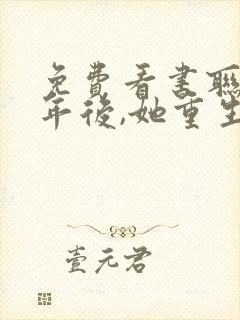 免費看書聯
年後,她重生
壹元君